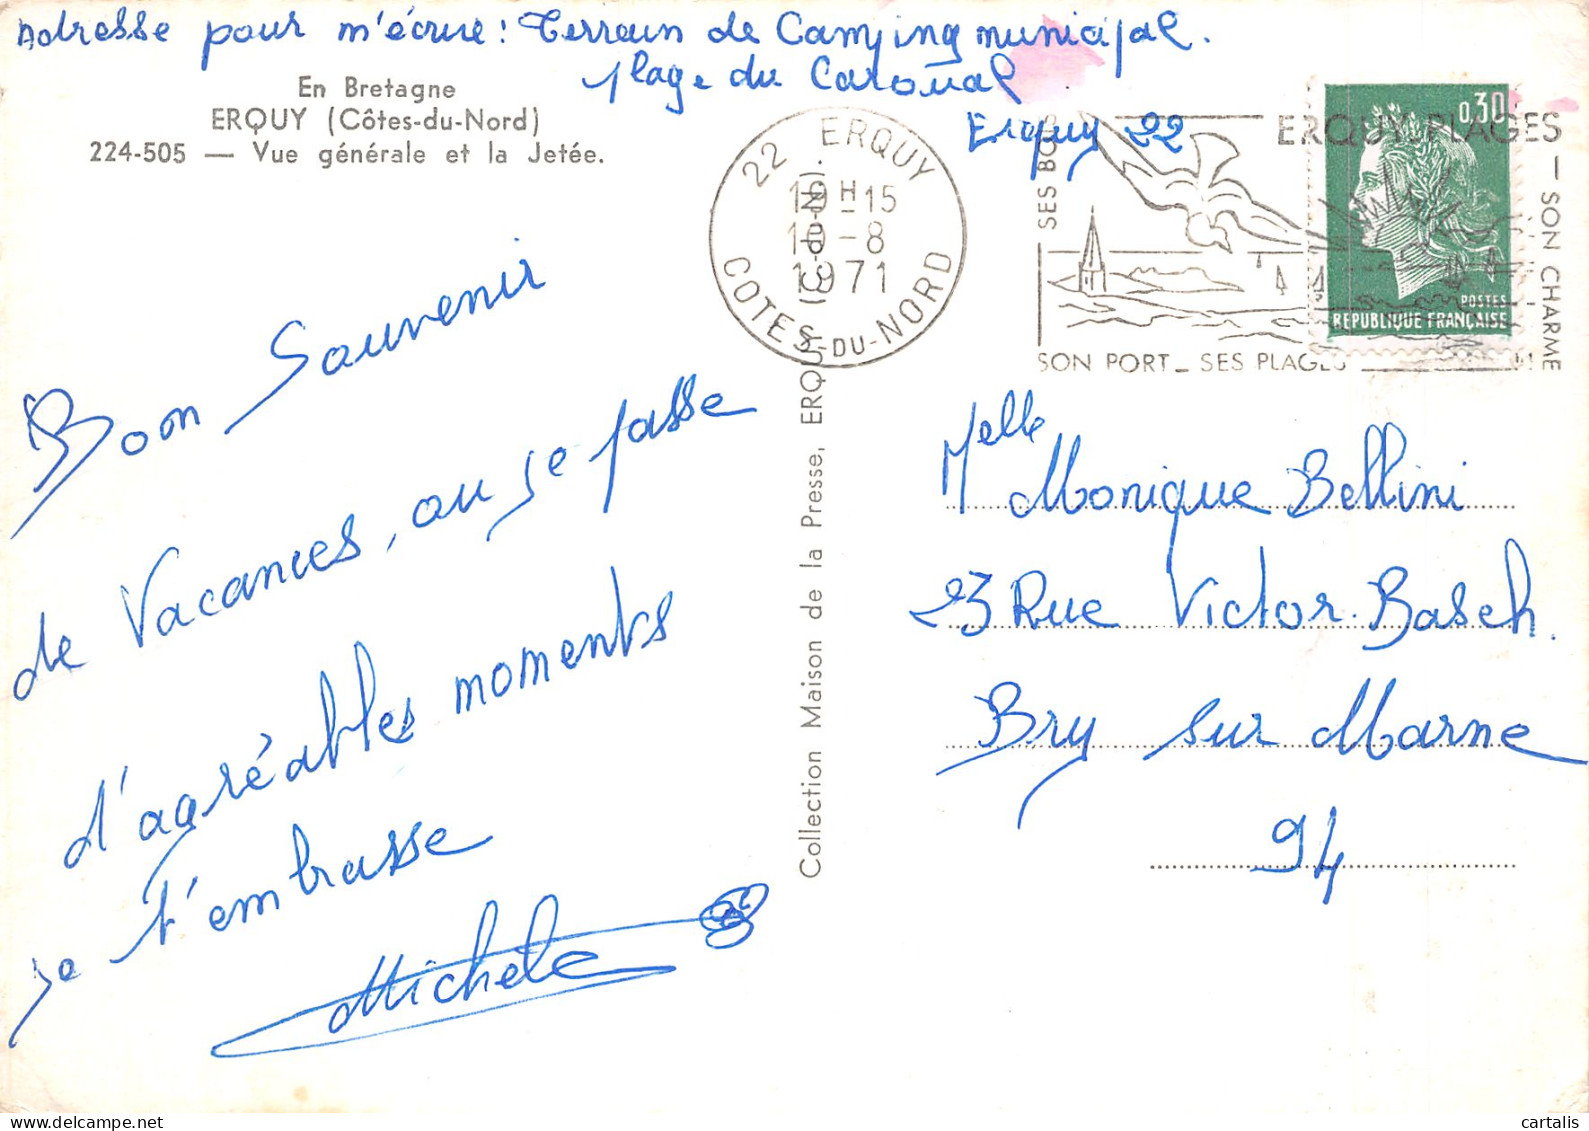 Adresse pour m'écrire : Terrain de Camping municipal.
plage du Caroual
Erquy 22
En Bretagne
ERQUY (Côtes-du-Nord)
224-505 — Vue générale et la Jetée.
22 ERQUY
19H15
10-8
1971
COTES-DU-NORD
ERQUY PLAGES
SES BOIS
SON CHARME
SON PORT - SES PLAGES
0,30
POSTES
REPUBLIQUE FRANÇAISE
Bon Souvenir
de Vacances, ou se passe
d'agréables moments
je t'embrasse
Michele
Collection Maison de la Presse, ERQUY (C-du-N).
Melle Monique Bellini
23 Rue Victor Basch.
Bry sur Marne
94
cartalis